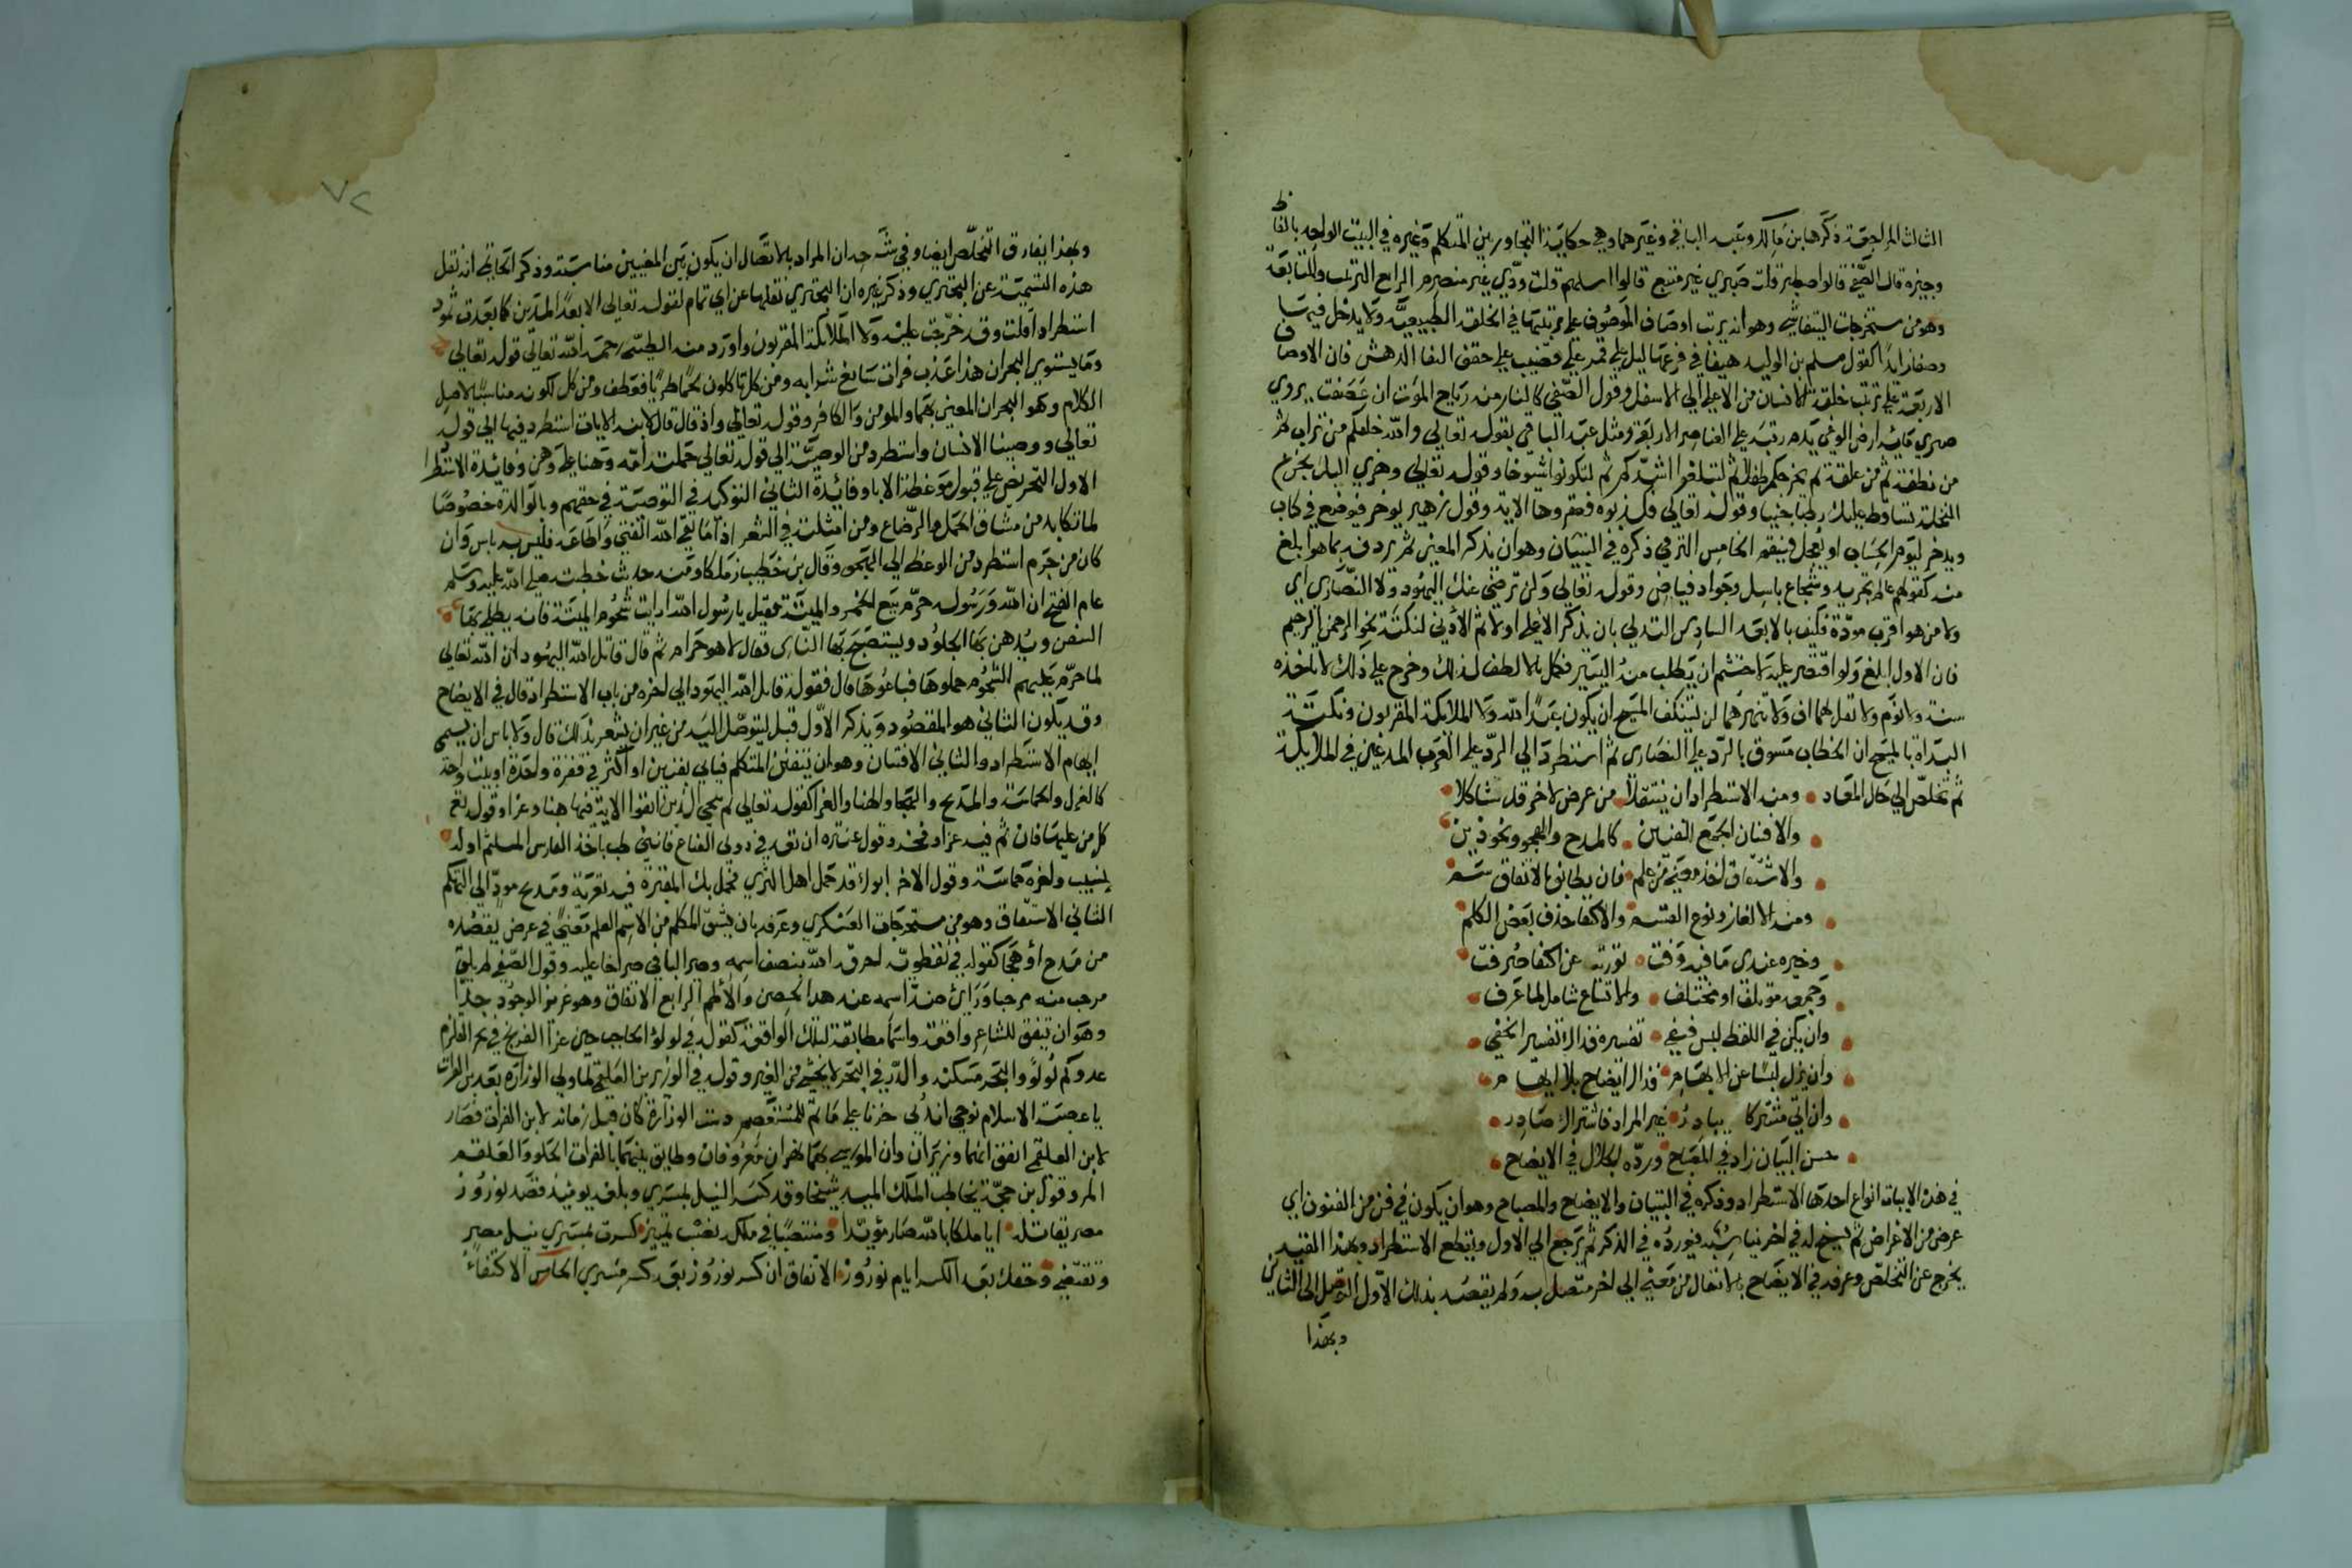 الثالث المراجعة ذكرها بن مالك وعبد الباقي وغيرهما وهي حكاية التجاور بين المتكلم وغيره في البيت الواحد بالفاظ
وجيزة قال الصفي قالوا اصطبر قلت صبري غير متبع قالوا اسلهم قلت ودي غير منصرم الرابع الترتيب والمتابعة
وهو من مستخرجات التيفاشي وهو ان يرتب اوصاف الموصوف على ترتيبها في الخلقة الطبيعية ولا يدخل فيها
وصفا زايدا كقول مسلم بن الوليد هيفا في فرعها ليل على قمر على قضيب على حقف النقا الدهش فان الاوصاف
الاربعة على ترتيب خلقة الانسان من الاعلى الى الاسفل وقول الصفي كالنار منه رياح الموت ان عصفت يروي
صري مائه ارض الوغى بدم رتبه على العناصر الاربعة ومثل عبد الباقي بقوله تعالى والله خلقكم من تراب ثم
من نطفة ثم من علقة ثم يخرجكم طفلا ثم لتبلغوا اشدكم ثم لتكونوا شيوخا وقوله تعالى وهزي اليك بجذع
النخلة تساقط عليك رطبا جنيا وقوله تعالى فكذبوه فعقروها الاية وقول زهير يوخر فيوضع في كتاب
ويدخر ليوم الحساب او يعجل فينقم الخامس الترقي ذكره في التبيان وهو ان يذكر المعنى ثم يردف بما هو ابلغ
منه كقولهم عالم نحرير وشجاع باسل وجواد فياض وقوله تعالى ولن ترضى عنك اليهود ولا النصارى اي
ولا من هو اقرب مودة فكيف بالابعد السادس التدلي بان يذكر الاعلى اولا ثم الأدنى لنكتة نحو الرحمن الرحيم
فان الاول ابلغ ولو اقتصر عليه لاحتشم ان يطلب منه اليسير فكمل بالالطف لذلك وخرج على ذلك لا تاخذه
سنة ولا نوم ولا تقل لهما اف ولا تنهرهما لن يستنكف المسيح ان يكون عبدا لله ولا الملايكة المقربون ونكتة
البداة بالمسيح ان الخطاب مسوق بالرد على النصارى ثم استطرد الى الرد على العرب المدعين في الملايكة
ثم تخلص الى حال المعاد ومنه الاستطراد ان ينتقلا من عرض لاخر قد شاكلا
والافتنان الجمع للفنين كالمدح والهجو ونحو ذين
والاشتقاق اخذ معنى من علم فان يطابق فالاتفاق سم
ومنه الالغاز ونوع القسم والاكتفا حذف بعض الكلم
وخيره عندي ما فيه وقت تورية عن اكتفا صرفت
وجمع موتلف او مختلف والاتساع شامل لما عرف
وان يكن في اللفظ لبس فيفي تفسيره فذاك تفسير الخفي
وان يزل لبسا عن الابهام فذاك ايضاح بلا ايهام
وان اتى مشتركا يبادر غير المراد فاشتراك صادر
حسن البيان زاد في المصباح ورده الجلال في الايضاح
في هذه الابيات انواع احدها الاستطراد وذكره في التبيان والايضاح والمصباح وهو ان يكون في فن من الفنون اي
عرض من الاغراض ثم يسنح له فن اخر يناسبه فيورده في الذكر ثم يرجع الى الاول ويقطع الاستطراد وبهذا القيد
يخرج عن التخلص وعرفه في الايضاح بالانتقال من معنى الى اخر متصل به ولم يقصد بذلك الاول التوصل الى الثاني
وبهذا
٧٢
وبهذا يفارق التخلص ايضا وفي شرحه ان المراد بالاتصال ان يكون بين المعنيين مناسبة وذكر الحاتمي انه نقل
هذه التسمية عن البحتري وذكر غيره ان البحتري نقلها عن ابي تمام كقوله تعالى الا بعدا لمدين كما بعدت ثمود
استطراد قلت وقد خرجت عليه ولا الملايكة المقربون واورد منه الطيبي رحمه الله تعالى قوله تعالى
وما يستوي البحران هذا عذب فرات سايغ شرابه ومن كل تاكلون لحما طريا فقوله ومن كل لكونه مناسبا لاصل
الكلام وهو البحران المعني بهما والمومن والكافر وقوله تعالى واذ قال لقمان لابنه الايات استطرد فيها الى قوله
تعالى ووصينا الانسان واستطرد من الوصية الى قوله تعالى حملته امه وهنا على وهن وفائدة الاستطراد
الاول التحريض على قبول موعظة الابا وفائدة الثاني التوكيد في التوصية في حقهم وبالوالدة خصوصا
لما تكابد من مشاق الحمل والرضاع ومن امثلته في الشعر اذا ما تقى الله الفتى واطاعه فليس به باس وان
كان من جرم استطرد من الوعظ الى الهجو وقال بن خطيب زملكا ومنه حديث خطبته صلى الله عليه وسلم
عام الفتح ان الله ورسوله حرم بيع الخمر والميتة فقيل يا رسول الله ارايت شحوم الميتة فانه يطلى بها
السفن ويدهن بها الجلود ويستصبح بها الناس فقال لا هو حرام ثم قال قاتل الله اليهود ان الله تعالى
لما حرم عليهم الشحوم جملوها فباعوها قال فقوله قاتل الله اليهود الى اخره من باب الاستطراد قال في الايضاح
وقد يكون الثاني هو المقصود ويذكر الاول قبل ليتوصل اليه من غير ان يشعر بذلك قال ولا باس ان يسمى
ايهام الاستطراد والثاني الافتنان وهو ان يتفنن المتكلم فياتي بفنين او اكثر في فقرة واحدة او بيت واحد
كالغزل والحماسة والمديح والهجا والهنا والعزا كقوله تعالى ثم ننجي الذين اتقوا الاية فيها هنا وعزا وقوله تعالى
كل من عليها فان ثم فيه عزا وفخر وقول عنتره ان تغدفي دوني القناع فانني طب باخذ الفارس المستلئم اوله
نسيب واخره حماسة وقول الاخر ابوك قد حمل اهل الثرى فجمل بك المقبرة فيه تعزية ومديح مودي الى التهكم
الثاني الاشتقاق وهو من مستخرجات العسكري وعرفه بان يشتق المتكلم من الاسم العلم معنى في عرض يقصده
من مدح او هجا كقوله في نفطويه احرقه الله بنصف اسمه وصير الباقي صراخا عليه وقول الصفي لم يلق
مرحب منه مرحبا وراى ضد اسمه عند هدم الحصن والأطم الرابع الاتفاق وهو عزيز الوجود جدا
وهو ان تتفق للشاعر واقعة واسما مطابقة لتلك الواقعة كقوله في لولو الحاجب حين غزا الفرنج في بحر القلزم
عدوكم لولو والبحر مسكنه والدر في البحر لا يخشى من الغير وقوله في الوزير بن العلقمي لما ولي الوزارة بعد بن الفرات
يا عصبة الاسلام نوحي واندبي حزنا على ما تم للمستعصم دست الوزارة كان قبل زمانه لابن الفرات فصار
لابن العلقمي اتفق انهما وزيران وان المورى بهما نهران معروفان وطابق بينهما بالفرات الحلو والعلقم
المر وقول بن حجة يخاطب الملك المويد شيخا وقد كسر النيل بمسري وبلغه يومئذ قصد نوروز
مصر بقاتله ايا ملكا بالله صار مؤيدا ومنتصبا في ملكه نصب تمييز كسرت بمسري نيل مصر
وتقتفي وحقك بعد الكسر ايام نوروز الاتفاق ان كسر نوروز بعد كسر مسري الخامس الاكتفاء